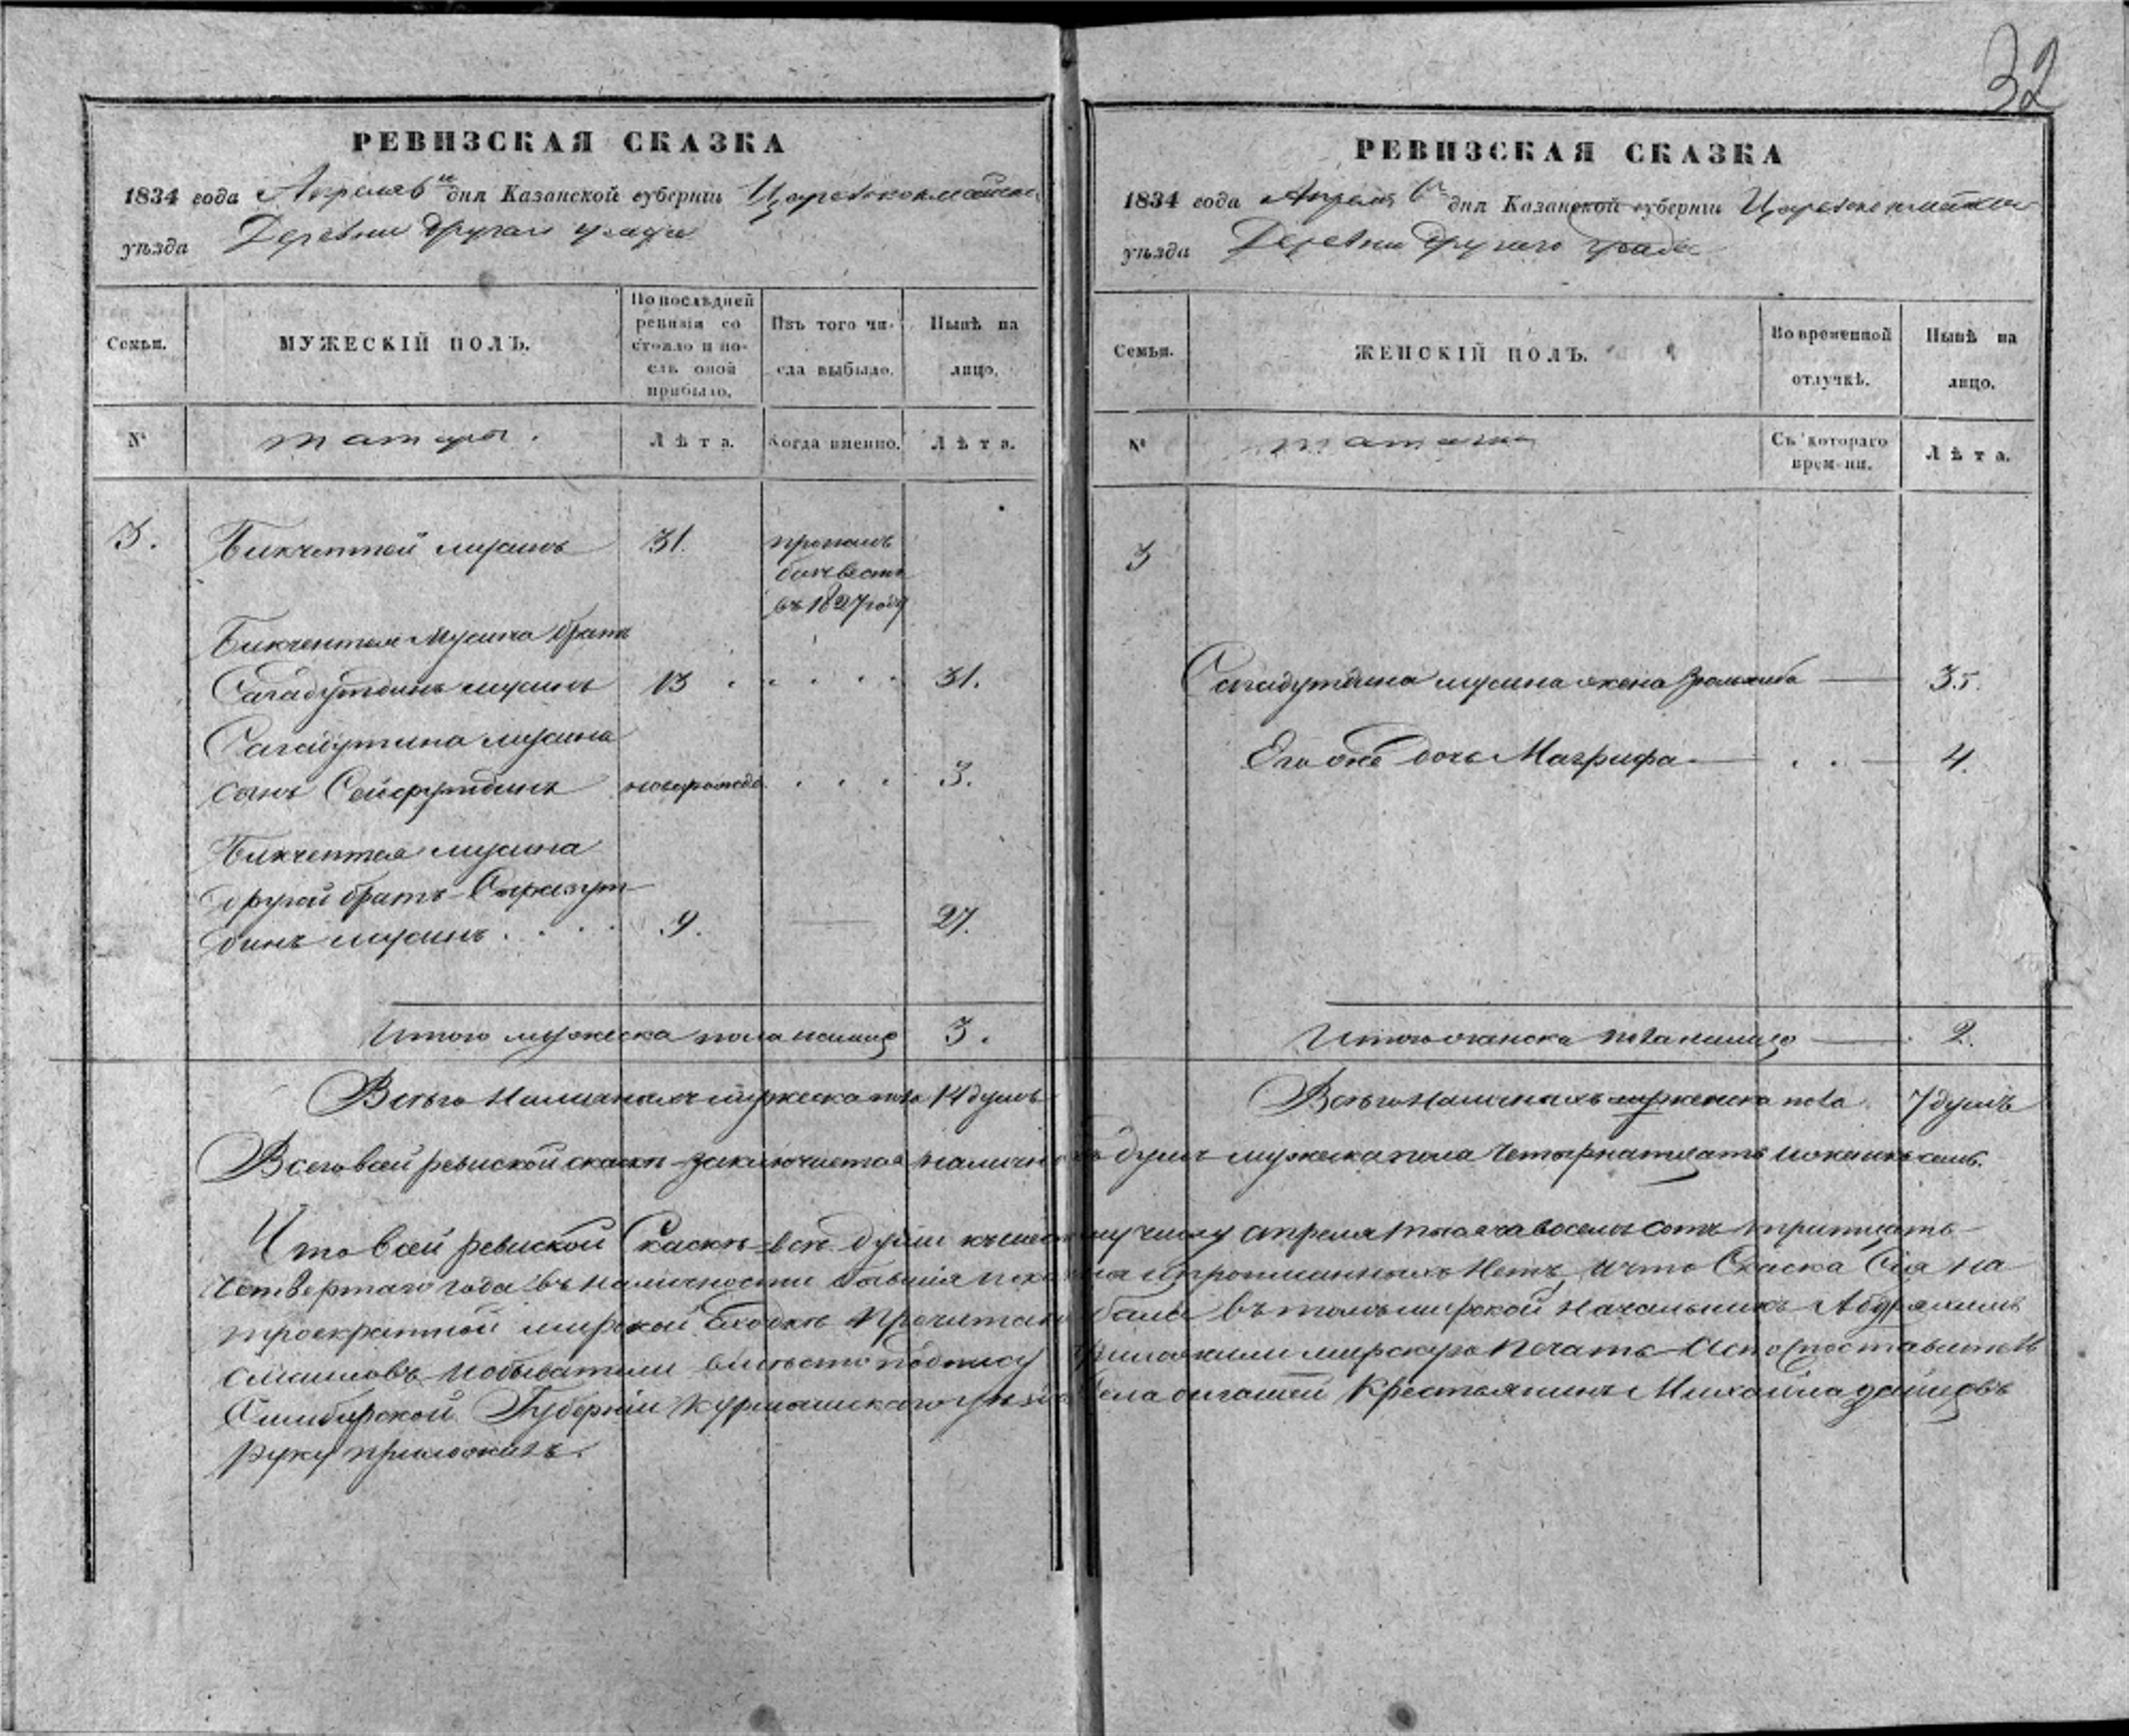 32
РЕВИЗСКАЯ СКАЗКА
1834 года Апреля 6 дня Казанской губерніи Царевококшайск
уѣзда Деревни другаго
Семьи.
МУЖЕСКІЙ ПОЛЪ.
По послѣдней ревизіи состояло и послѣ оной прибыло.
Изъ того числа выбыло.
Нынѣ на лицо.
№
татары.
Лѣта.
Когда именно.
Лѣта.
3. Бикчентей мусинъ 31. пропалъ
безъ вести
въ 1827 году
Бикчентея Мусина братъ
Сагадутдинъ мусинъ 13 31.
Сагадутина мусина
сынъ Сейфутдинъ новорожде 3.
Бикчентея мусина
другой братъ
динъ мусинъ 9. 27.
Итого мужеска пола налицо 3.
Всего наличныхъ мужеска пола 14 душъ
РЕВИЗСКАЯ СКАЗКА
1834 года Апреля 6 дня Казанской губерніи Царевококшайск
уѣзда Деревни другаго
Семьи.
ЖЕНСКІЙ ПОЛЪ.
Во временной отлучкѣ.
Нынѣ на лицо.
№
Съ котораго времени.
Лѣта.
3
Сагадутдина мусина жена 35.
Его же дочь Магрифа 4.
Итого женска пола налицо 2.
Всего наличныхъ женска пола 7 душъ
Всего в сей ревиской скаски заключается наличныхъ душъ мужеска пола четырнатцать и женска семь.
Что в сей ревиской Скаске все души къ шестому числу апреля тысяча восемь сотъ тритцать
четвертаго года въ наличности бывшія показаны и прописанныхъ нетъ, и что Скаска Сія на
троекратной мирской сходке прочитана была въ томъ мирской начальникъ
и обыватели вместо подпису приложили мирскую печать
Симбирской Губерніи Курмышскаго уезда села крестьянинъ Михайла
руку приложилъ.